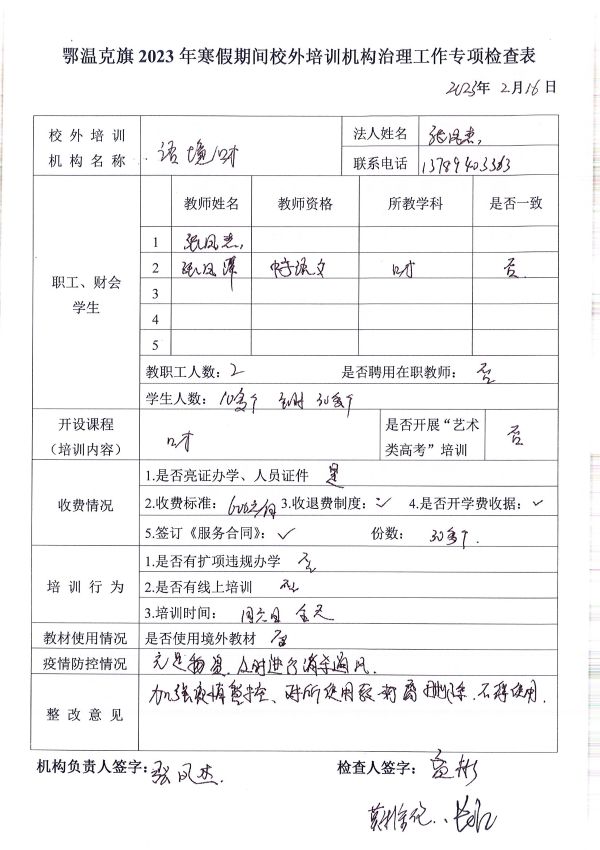 鄂温克旗2023年寒假期间校外培训机构治理工作专项检查表
2023年 2月16日
校外培训机构名称 语境口才 法人姓名 张凤杰
联系电话 13789403363
职工、财会学生 教师姓名 教师资格 所教学科 是否一致
1 张凤杰
2 张凤 中学语文 口才 否
3
4
5
教职工人数：2 是否聘用在职教师：否
学生人数：10多个 30多个
开设课程（培训内容） 口才 是否开展“艺术类高考”培训 否
收费情况 1.是否亮证办学、人员证件 是
2.收费标准： 3.收退费制度：✓ 4.是否开学费收据：✓
5.签订《服务合同》：✓ 份数：30多个.
培训行为 1.是否有扩项违规办学 否
2.是否有线上培训 否
3.培训时间： 周六日 全天
教材使用情况 是否使用境外教材 否
疫情防控情况 充足物资，及时进行消杀通风.
整改意见 加强疫情防控、对所使用教材 删除.不得使用.
机构负责人签字：张凤杰. 检查人签字：